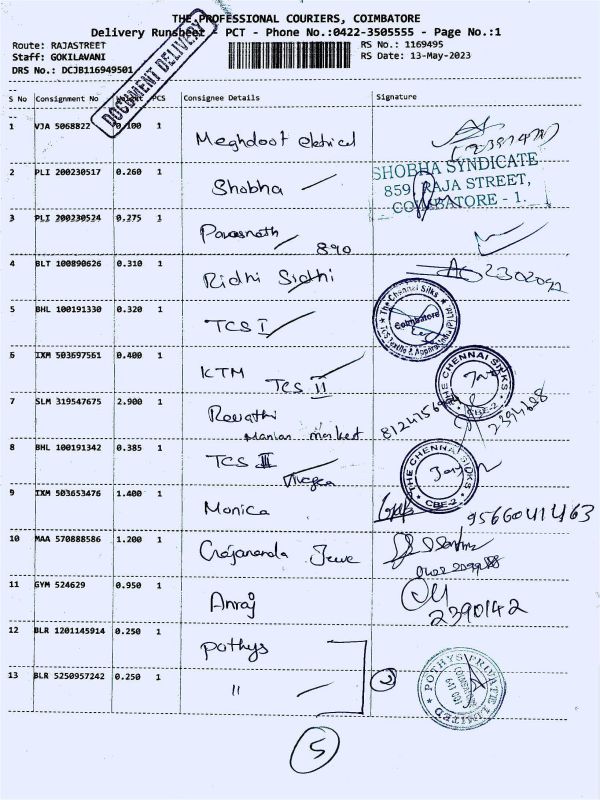 THE PROFESSIONAL COURIERS, COIMBATORE
Delivery Runsheet - PCT - Phone No.:0422-3505555 - Page No.:1
Route: RAJASTREET RS No.: 1169495
Staff: GOKILAVANI RS Date: 13-May-2023
DRS No.: DCJB116949501
DOCUMENT DELIVERY
S No Consignment No PCS Consignee Details Signature
1 VJA 5068822 0.100 1 Meghdoot
2 PLI 200230517 0.260 1 Shobha
SHOBHA SYNDICATE
859, RAJA STREET,
COIMBATORE - 1.
3 PLI 200230524 0.275 1 Parasnath 890
4 BLT 100890626 0.310 1 Ridhi Sidhi
5 BHL 100191330 0.320 1 TCS I
The Chennai Silks
Coimbatore
6 IXM 503697561 0.400 1 KTM TCS II
THE CHENNAI SILKS
CBE-2
7 SLM 319547675 2.900 1 Revathi
Manian market
8 BHL 100191342 0.385 1 TCS III
THE CHENNAI SILKS
CBE-2
9 IXM 503653476 1.400 1 Monica 9566041463
10 MAA 570888586 1.200 1
11 GYM 524629 0.950 1 Anraj 2390142
12 BLR 1201145914 0.250 1 Pothys
13 BLR 5250957242 0.250 1 " 2
POTHYS PRIVATE LIMITED
COIMBATORE
641 001
5